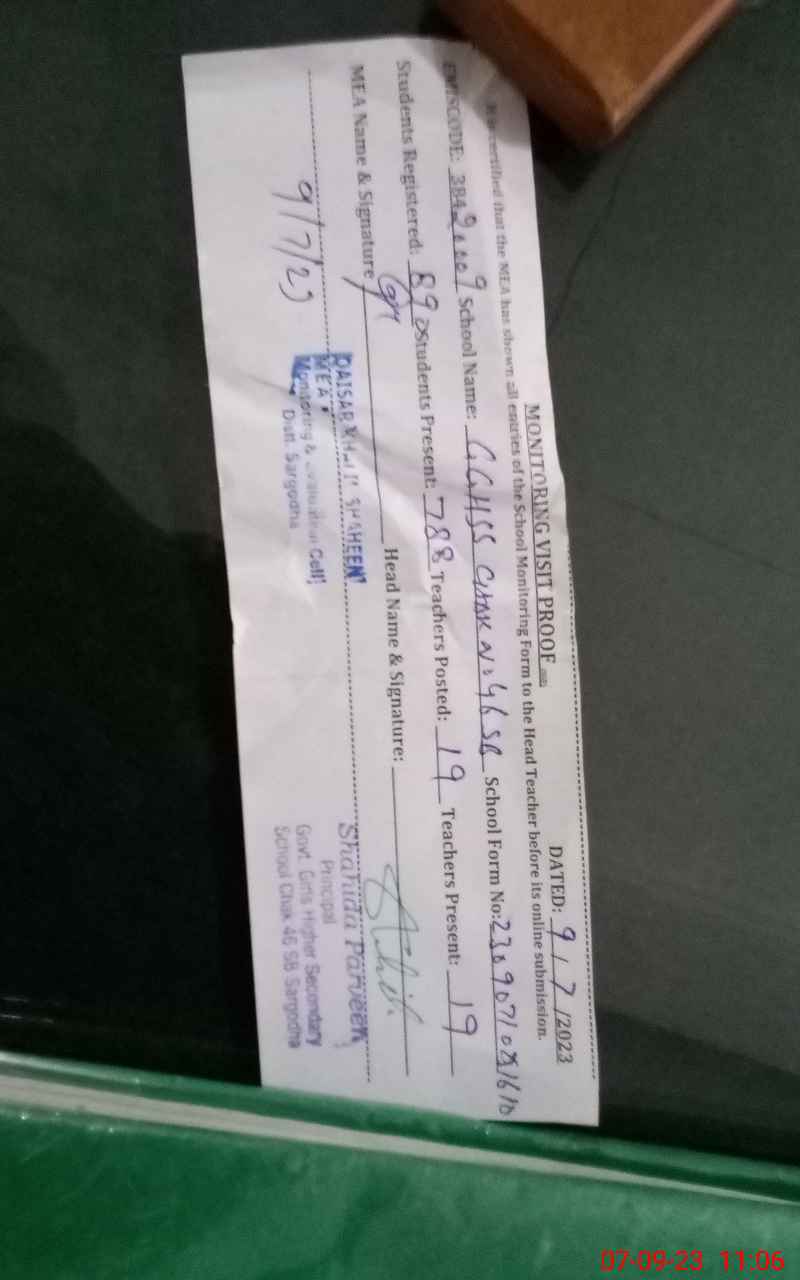 MONITORING VISIT PROOF
DATED: 9/7/2023
certified that the MEA has shown all entries of the School Monitoring Form to the Head Teacher before its online submission.
EMISCODE: School Name: GGHSS CHAK No 46 SB School Form No:
Students Registered: Students Present: 788 Teachers Posted: 19 Teachers Present: 19
MEA Name & Signature Head Name & Signature:
9/7/23
SHAHEEN
MEA
Monitoring & Evaluation Cell
Distt. Sargodha
Shahida Parveen
Principal
Govt. Girls Higher Secondary
School Chak 46 SB Sargodha
07-09-23 11:06